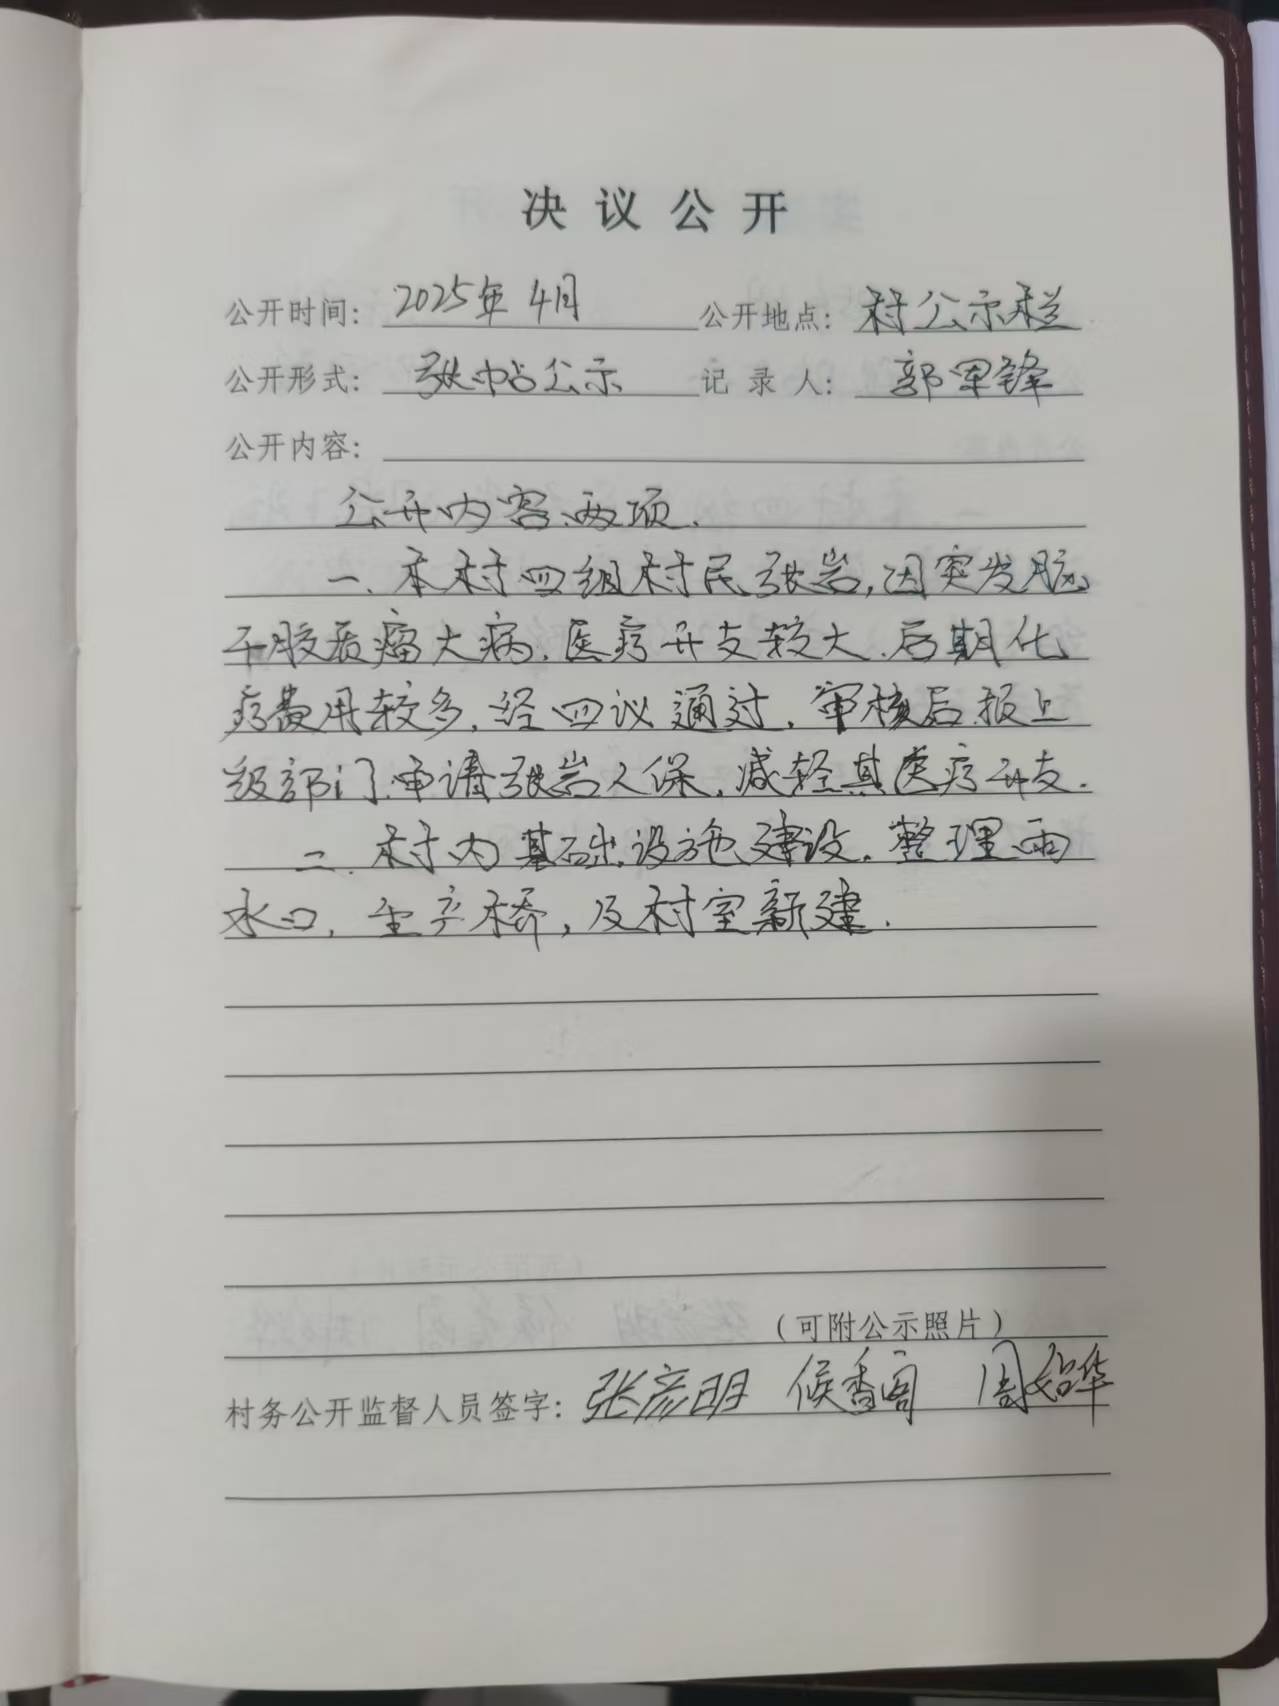 决议公开
公开时间：2025年4月 公开地点：村公示栏
公开形式：张帖公示 记录人：郭军锋
公开内容：
公开内容两项.
一.本村四组村民张岩,因突发脑
干胶质瘤大病.医疗开支较大.后期化
疗费用较多.经四议通过.审核后报上
级部门.申请张岩入保.减轻其医疗开支.
二.村内基础设施建设.整理雨
水口,生产桥,及村室新建.
（可附公示照片）
村务公开监督人员签字：张彦明 候香阁 周 华